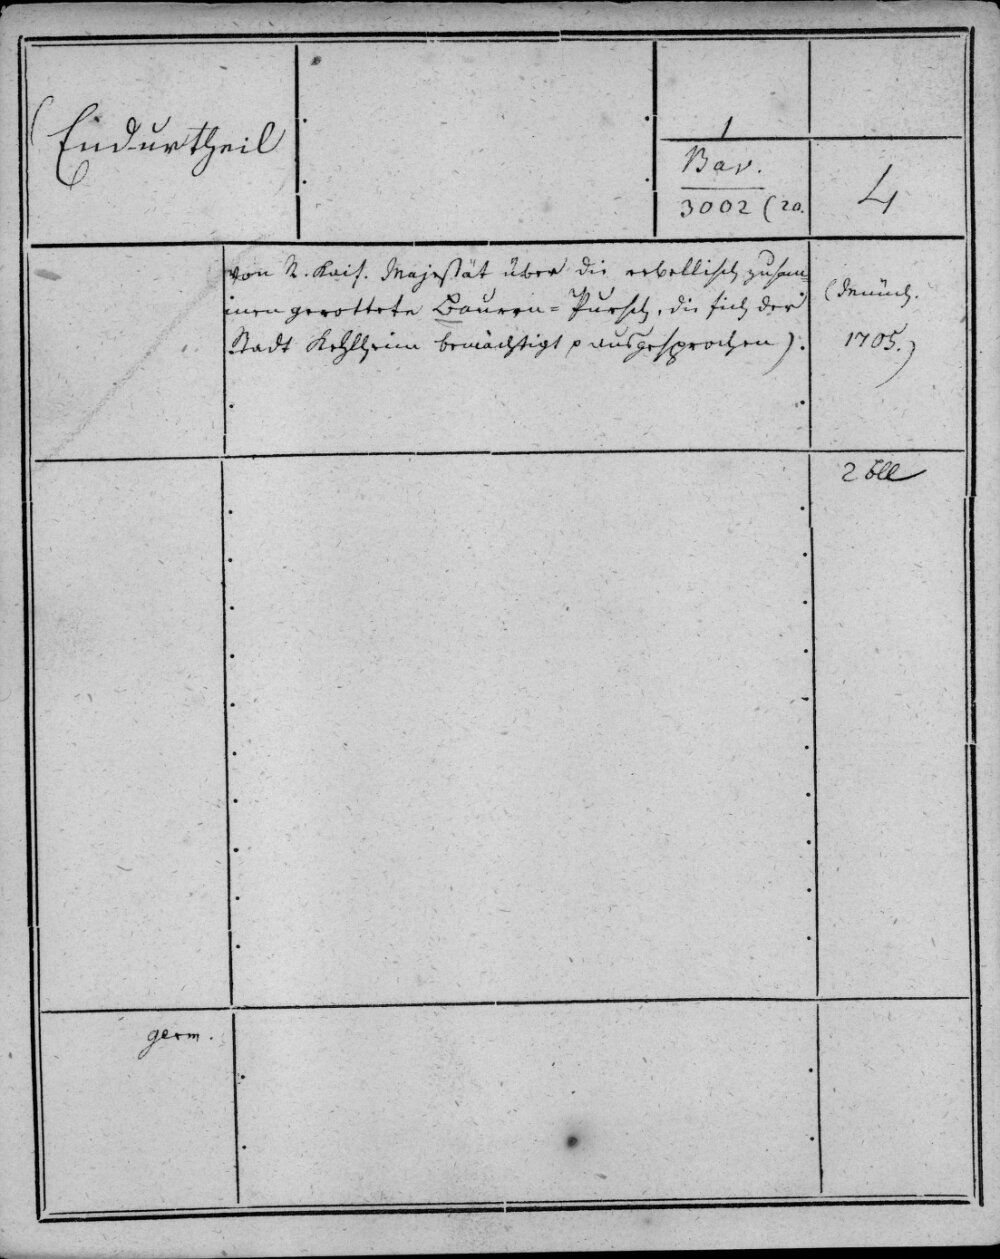 (Endurtheil
1
Bav.
3002 (20.
4
von R. Kais. Majestät über die rebellisch zusam-
mengerottete Bauren-Pursch, die sich der
Stadt Kehlheim bemächtigt p ausgesprochen).
(Münch.
1705.)
2 Bll
germ.